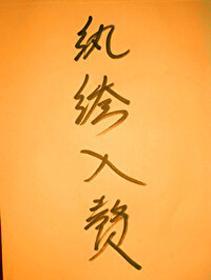 纨绔入赘